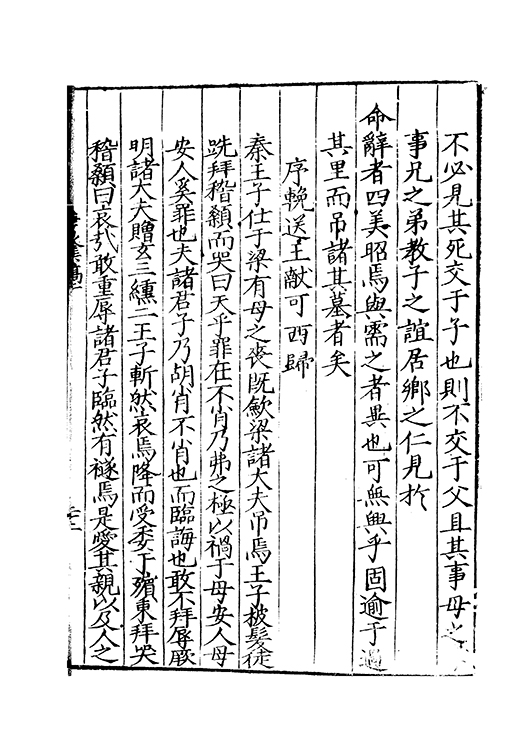 不必見其死交于子也則不交于父且其事母之
事兄之弟教子之誼居鄉之仁見於
命辭者四美昭焉與需之者異也可無興乎固逾于過
其里而吊諸其墓者矣
序輓送王獻可西歸
秦王子仕于梁有母之喪既歛梁諸大夫吊焉王子披髮徒
跣拜稽顙而哭曰天乎罪在不肖乃弗之極以禍于母安人母
安人奚罪也夫諸君子乃胡肖不肖也而臨誨也敢不拜辱厥
明諸大夫贈玄三纁二王子斬然哀焉降而受委于殯東拜哭
稽顙曰哀哉敢重辱諸君子臨然有襚焉是愛其親以及人之